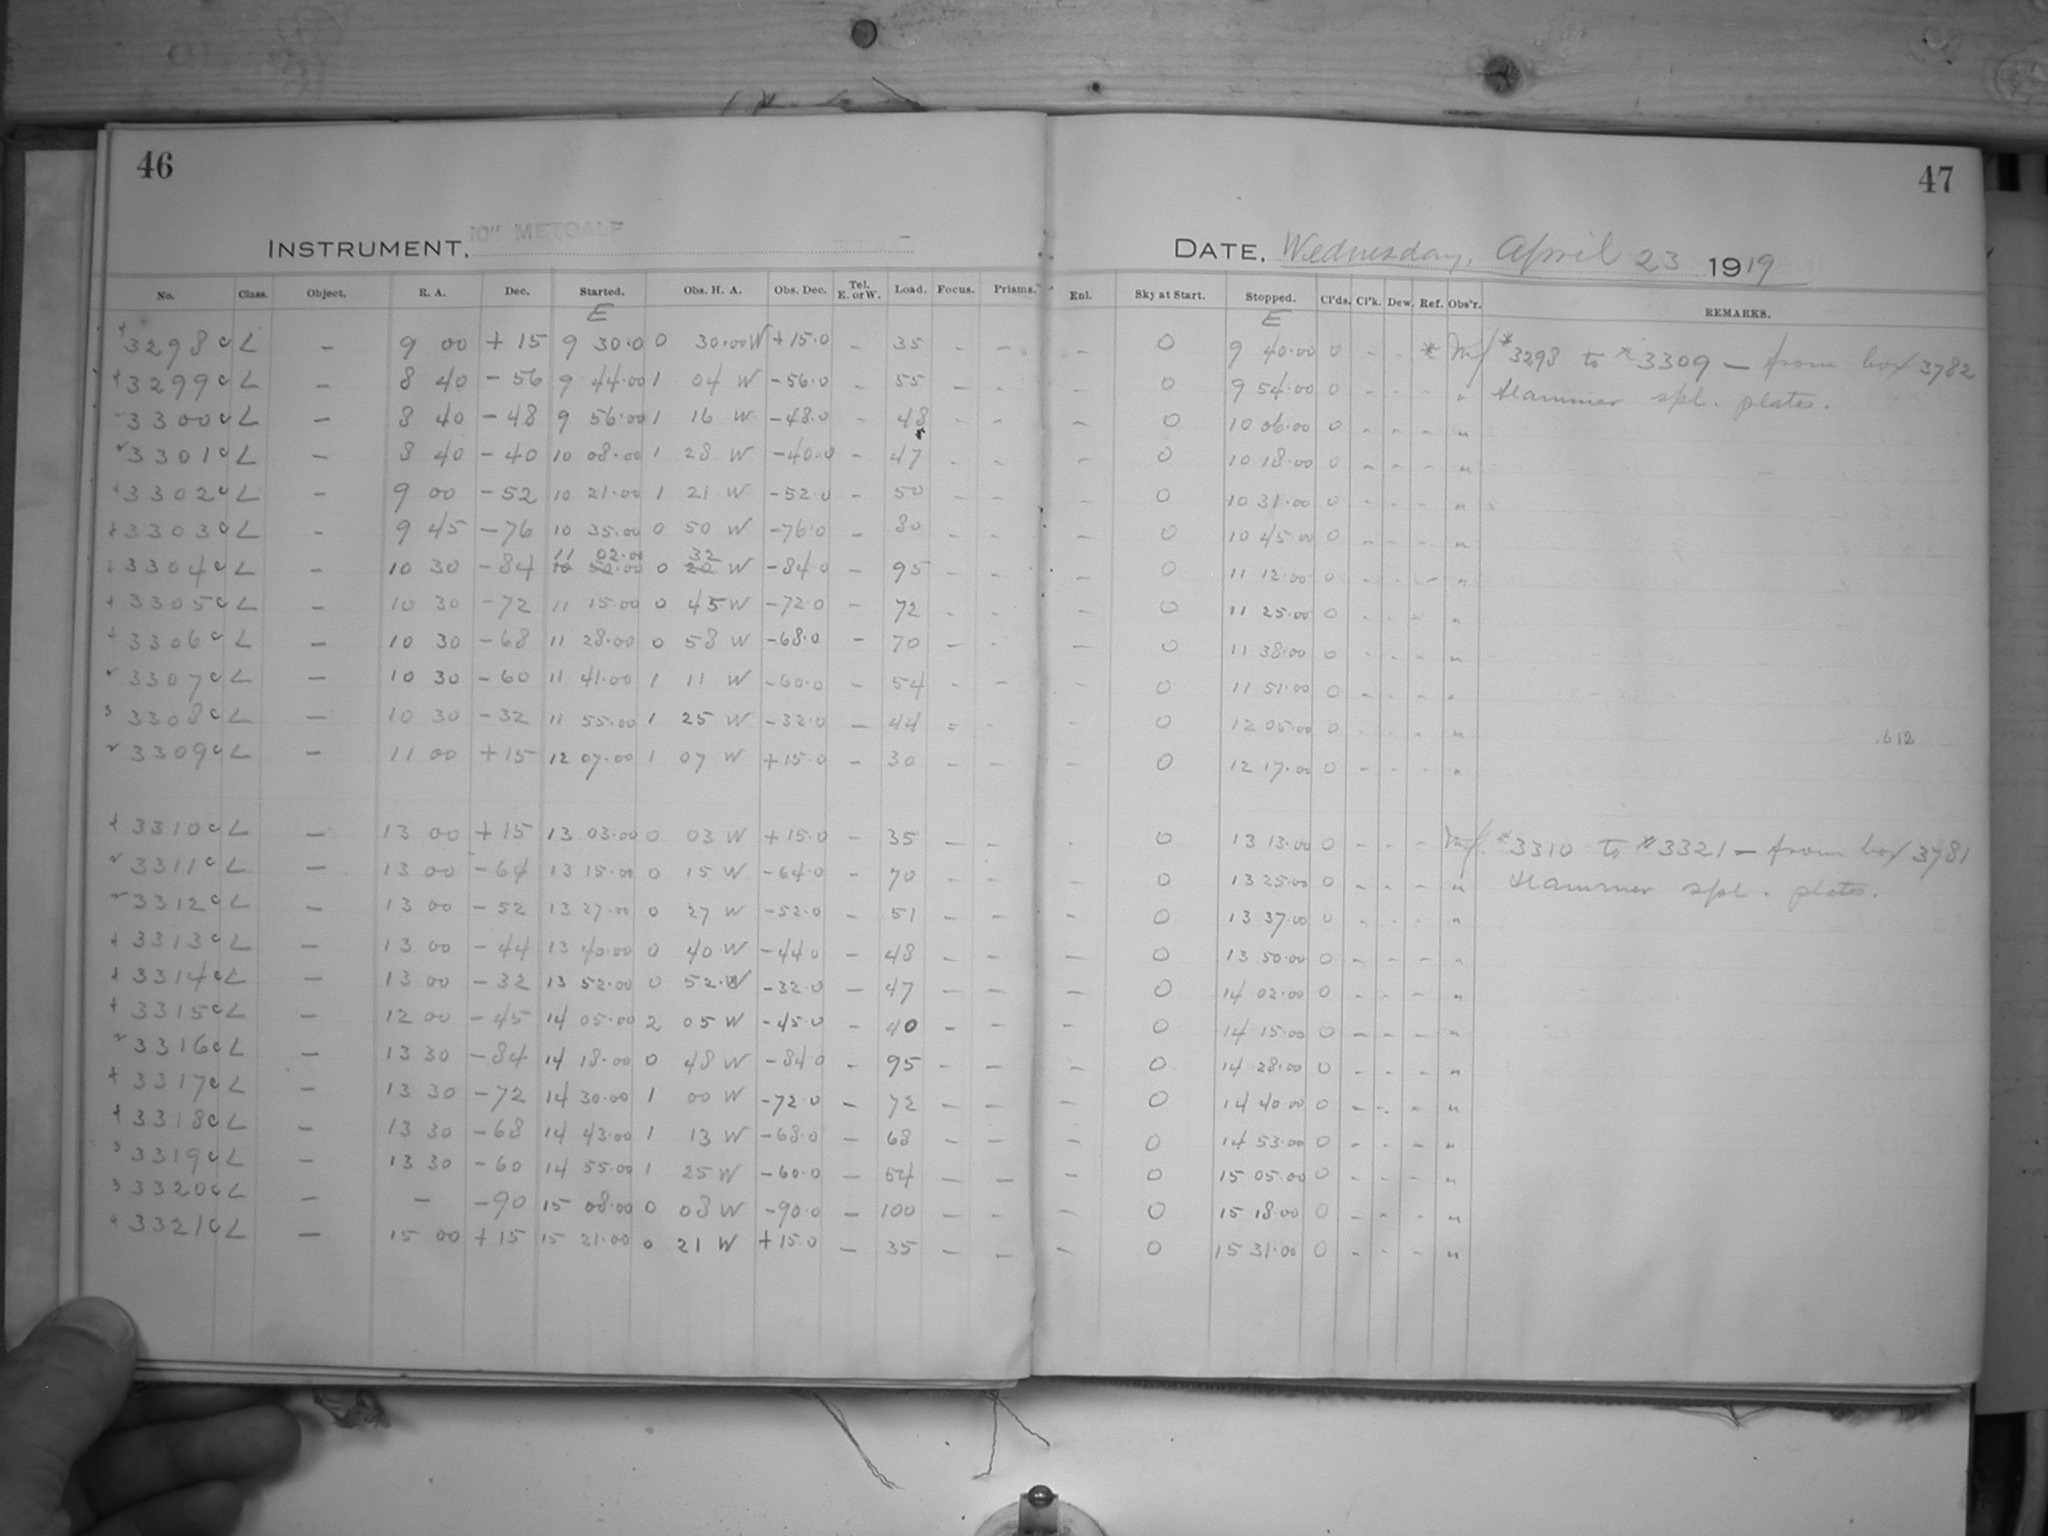 46
47
INSTRUMENT, 10" METCALF
DATE, Wednesday, April 23 1919
No. Class. Object. R. A. Dec. Started. Obs. H. A. Obs. Dec. Tel. E. or W. Load. Focus. Prisms. Enl. Sky at Start. Stopped. Cl'ds. Cl'k. Dew. Ref. Obs'r. REMARKS.
E E
3298 c L — 9 00 + 15 9 30.0 0 30.00 W + 15.0 - 35 - - - 0 9 40.00 0 - - * *3298 to *3309 — from box 3782
3299 c L — 8 40 - 56 9 44.00 1 04 W -56.0 - 55 - - - 0 9 54.00 0 - - - " Hammer spl. plates.
3300 c L — 8 40 - 48 9 56.00 1 16 W -48.0 - 48 - - - 0 10 06.00 0 - - - "
3301 c L — 8 40 - 40 10 08.00 1 28 W -40.0 - 47 - - - 0 10 18.00 0 - - - "
3302 c L — 9 00 - 52 10 21.00 1 21 W -52.0 - 50 - - - 0 10 31.00 0 - - - "
3303 c L — 9 45 - 76 10 35.00 0 50 W -76.0 - 80 - - - 0 10 45.00 0 - - - "
11 02.00 32
3304 c L — 10 30 - 84 10 50.00 0 20 W -84.0 - 95 - - - 0 11 12.00 0 - - - "
3305 c L — 10 30 - 72 11 15.00 0 45 W -72.0 - 72 - - - 0 11 25.00 0 - - - "
3306 c L — 10 30 - 68 11 28.00 0 58 W -68.0 - 70 - - - 0 11 38.00 0 - - - "
3307 c L — 10 30 - 60 11 41.00 1 11 W -60.0 - 54 - - - 0 11 51.00 0 - - - "
3308 c L — 10 30 - 32 11 55.00 1 25 W -32.0 - 44 - - - 0 12 05.00 0 - - - "
.612
3309 c L — 11 00 + 15 12 07.00 1 07 W + 15.0 - 30 - - - 0 12 17.00 0 - - - "
3310 c L — 13 00 + 15 13 03.00 0 03 W + 15.0 - 35 - - - 0 13 13.00 0 - - - *3310 to *3321 — from box 3781
3311 c L — 13 00 - 64 13 15.00 0 15 W -64.0 - 70 - - - 0 13 25.00 0 - - - " Hammer spl. plates.
3312 c L — 13 00 - 52 13 27.00 0 27 W -52.0 - 51 - - - 0 13 37.00 0 - - - "
3313 c L — 13 00 - 44 13 40.00 0 40 W -44.0 - 48 - - - 0 13 50.00 0 - - - "
3314 c L — 13 00 - 32 13 52.00 0 52 W -32.0 - 47 - - - 0 14 02.00 0 - - - "
3315 c L — 12 00 - 45 14 05.00 2 05 W -45.0 - 40 - - - 0 14 15.00 0 - - - "
3316 c L — 13 30 - 84 14 18.00 0 48 W -84.0 - 95 - - - 0 14 28.00 0 - - - "
3317 c L — 13 30 - 72 14 30.00 1 00 W -72.0 - 72 - - - 0 14 40.00 0 - - - "
3318 c L — 13 30 - 68 14 43.00 1 13 W -68.0 - 68 - - - 0 14 53.00 0 - - - "
3319 c L — 13 30 - 60 14 55.00 1 25 W -60.0 - 54 - - - 0 15 05.00 0 - - - "
3320 c L — - -90 15 08.00 0 08 W -90.0 - 100 - - - 0 15 18.00 0 - - - "
3321 c L — 15 00 + 15 15 21.00 0 21 W + 15.0 - 35 - - - 0 15 31.00 0 - - - "